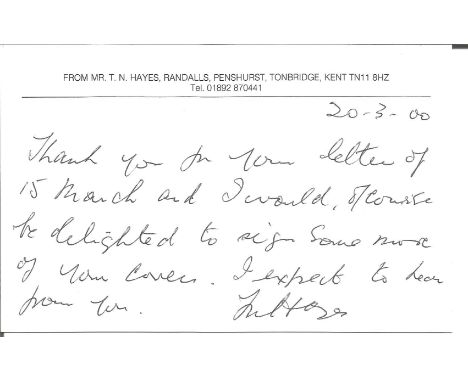 FROM MR. T. N. HAYES, RANDALLS, PENSHURST, TONBRIDGE, KENT TN11 8HZ
Tel. 01892 870441
20-3-00
Thank you for your letter of
15 March and I would, of course
be delighted to sign some more
of your covers. I expect to hear
from you. TN Hayes